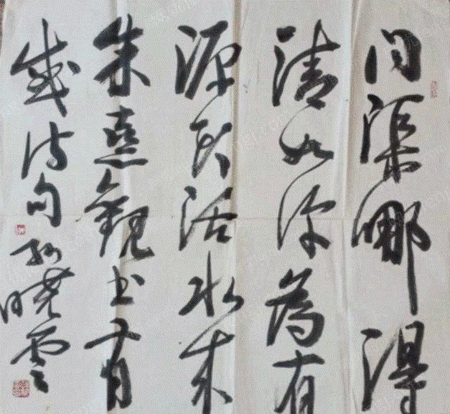 问渠哪得
清如许為有
源头活水来
朱熹觀书有
感诗句 孙曉雲